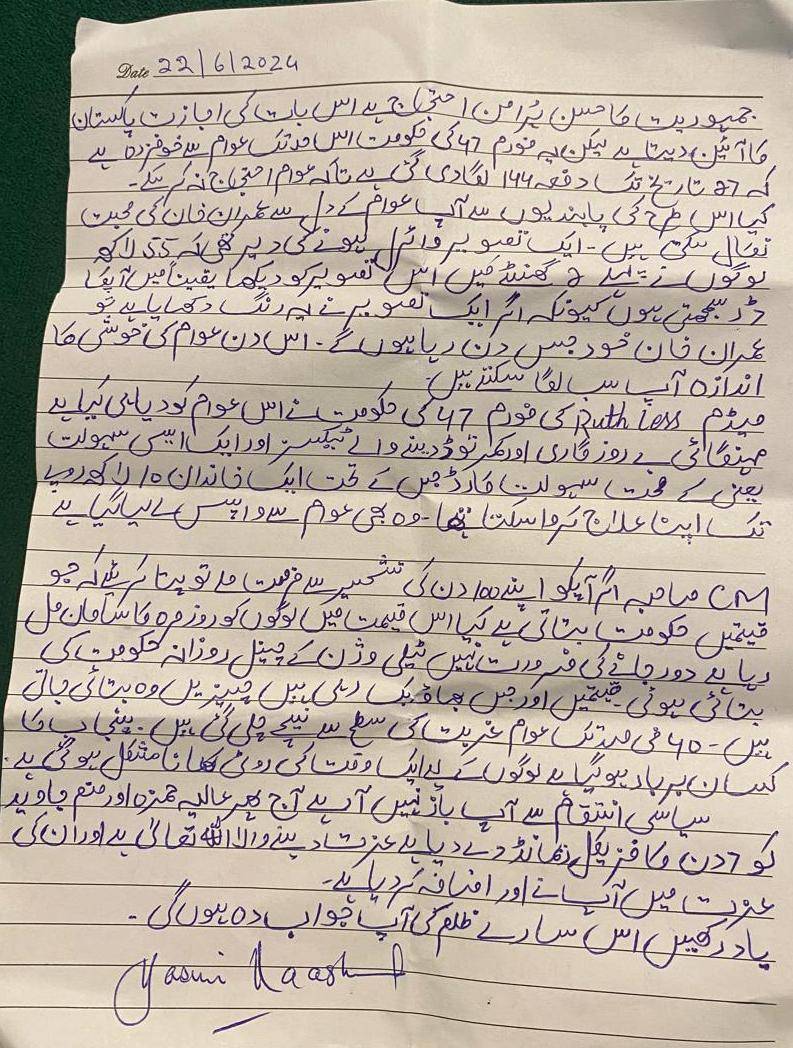 Date 22/6/2024
جمہوریت کا حسن پُرامن احتجاج ہے اس بات کی اجازت پاکستان
کا آئین دیتا ہے لیکن یہ فورم 47 کی حکومت اس حد تک عوام سے خوفزدہ ہے
کہ 27 تاریخ تک دفعہ 144 لگا دی گئی ہے تاکہ عوام احتجاج نہ کر سکے۔
کیا اس طرح کی پابندیوں سے آپ عوام کے دل سے عمران خان کی محبت
نکال سکتی ہیں۔ ایک تصویر وائرل ہونے کی دیر تھی کہ 55 لاکھ
لوگوں نے پہلے 2 گھنٹے میں اس تصویر کو دیکھا یقیناً میں آپکا
ڈر سمجھتی ہوں کیونکہ اگر ایک تصویر نے یہ رنگ دکھایا ہے تو
عمران خان خود جس دن رہا ہوں گے۔ اس دن عوام کی خوشی کا
اندازہ آپ سب لگا سکتے ہیں۔
میڈم Ruthless کی فورم 47 کی حکومت نے اس عوام کو دیا ہی کیا ہے
مہنگائی بے روزگاری اور کمر توڑ دینے والے ٹیکسز اور ایک ایسی سہولت
یعنی کے صحت سہولت کارڈ جس کے تحت ایک خاندان 10 لاکھ روپے
تک اپنا علاج کروا سکتا تھا۔ وہ بھی عوام سے واپس لے لیا گیا ہے
CM صاحبہ اگر آپکو اپنے 100 دن کی تشہیر سے فرصت ملے تو پتا کریئے کہ جو
قیمتیں حکومت بتاتی ہے کیا اس قیمت میں لوگوں کو روزمرہ کا سامان مل
رہا ہے دور جانے کی ضرورت نہیں ٹیلی وژن کے چینل روزانہ حکومت کی
بتائی ہوئی قیمتیں اور جس بھاؤ بک رہی ہیں چیزیں وہ بتائی جاتی
ہیں۔ 40 فی صد تک عوام غربت کی سطح سے نیچے چلی گئی ہیں۔ پنجاب کا
کسان برباد ہو گیا ہے لوگوں کے لیے ایک وقت کی روٹی کھانا مشکل ہو گئی ہے۔
سیاسی انتقام سے آپ باز نہیں آ رہے آج پھر عالیہ حمزہ اور صنم جاوید
کو 7 دن کا فزیکل ریمانڈ دے دیا ہے عزت دینے والا اللہ تعالیٰ ہے اور ان کی
عزت میں آپ نے اور اضافہ کر دیا ہے۔
یاد رکھیں اس سارے ظلم کی آپ جواب دہ ہوں گی۔
Yasmin Raashid